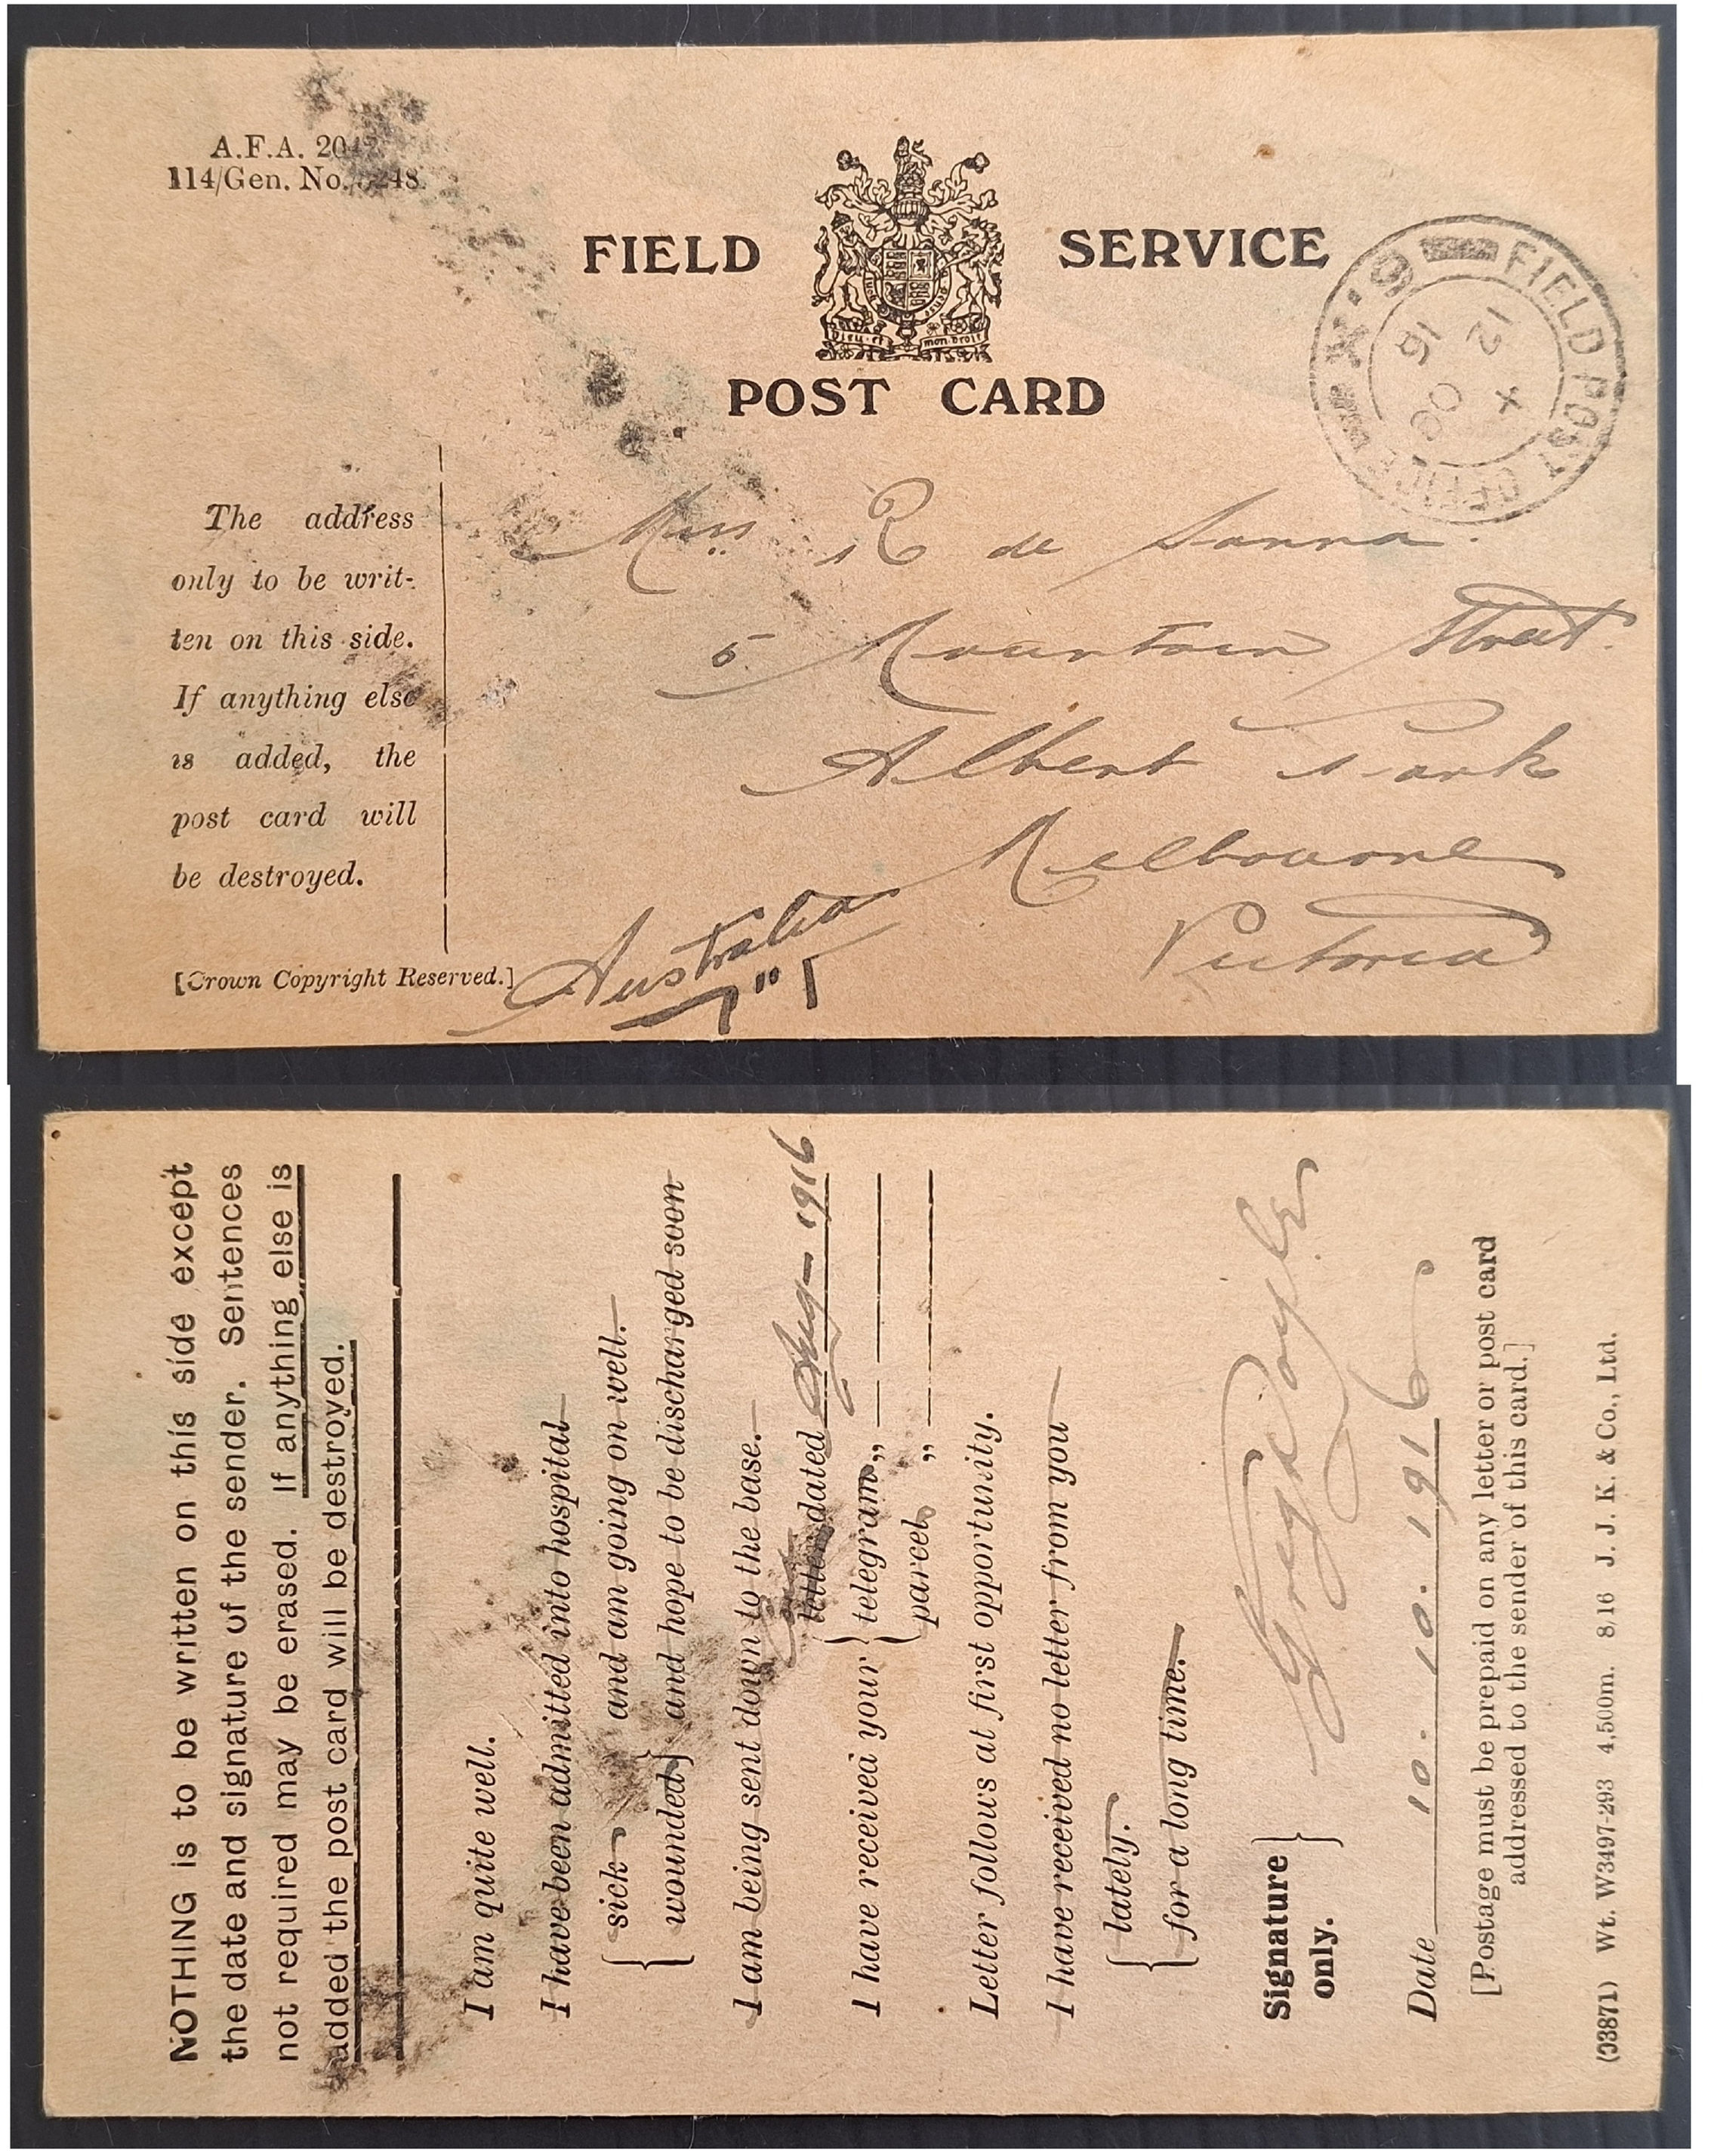 A.F.A. 2042
114/Gen. No. 5248.
FIELD SERVICE
Dieu et mon Droit
POST CARD
FIELD POST OFFICE
X.6
12
X
16
The address
only to be writ-
ten on this side.
If anything else
is added, the
post card will
be destroyed.
[Crown Copyright Reserved.]
Miss R de
5 Mountain Street.
Albert Park
Melbourne
Victoria
Australia
NOTHING is to be written on this side except
the date and signature of the sender. Sentences
not required may be erased. If anything else is
added the post card will be destroyed.
I am quite well.
I have been admitted into hospital
{ sick } and am going on well.
{ wounded } and hope to be discharged soon
I am being sent down to the base.
letter dated Aug – 1916
I have received your { telegram „
parcel „
Letter follows at first opportunity.
I have received no letter from you
{ lately.
{ for a long time.
Signature
only.
Date 10. 10. 1916
[Postage must be prepaid on any letter or post card
addressed to the sender of this card.]
(33871) Wt. W3497-293 4,500m. 8.16 J. J. K. & Co., Ltd.